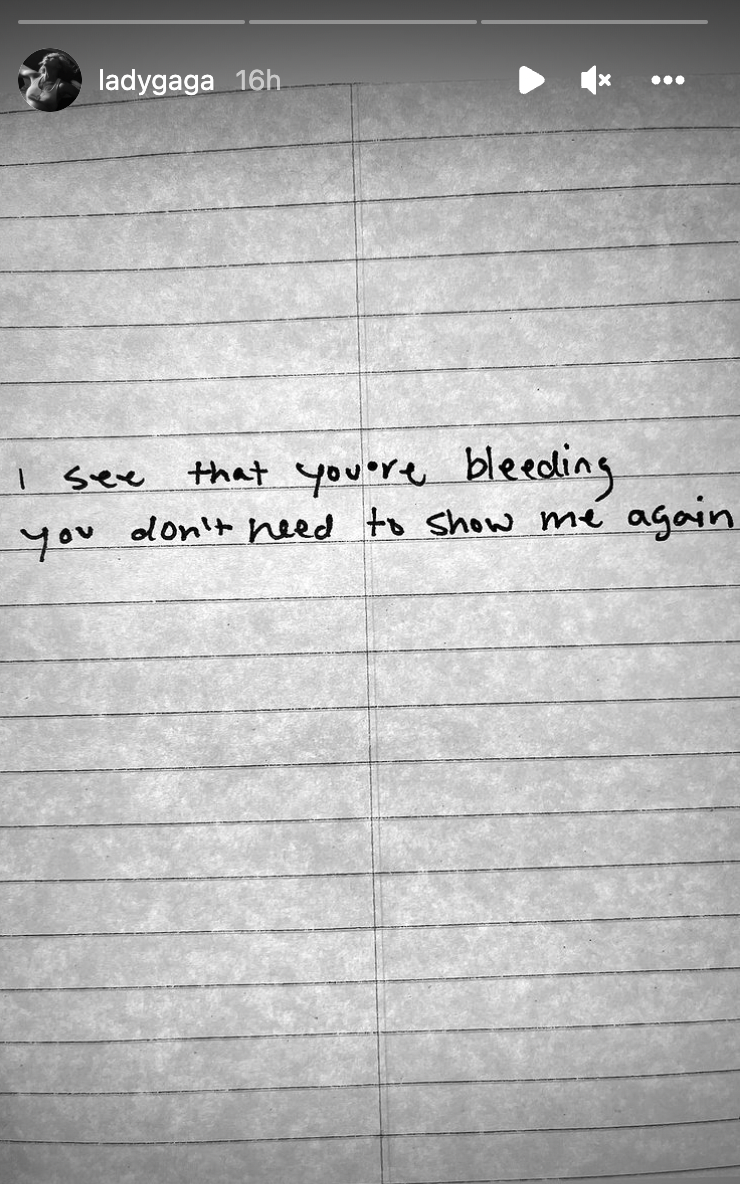 ladygaga 16h
I see that you're bleeding
you don't need to show me again